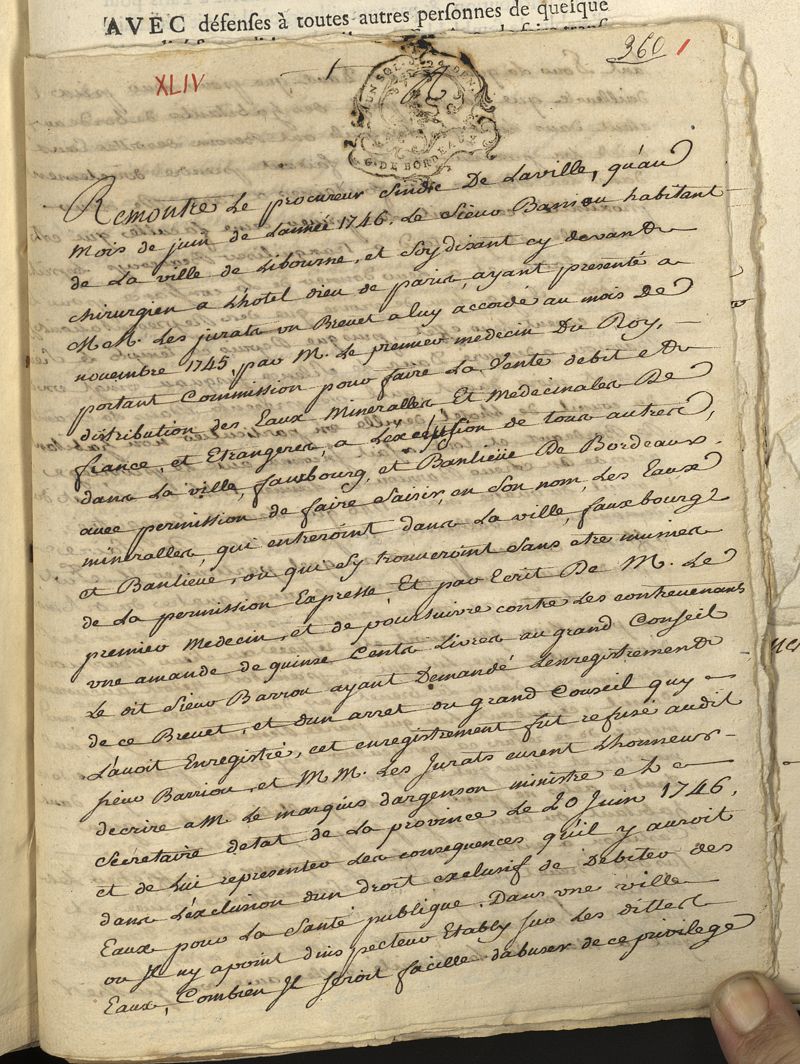 AVEC défenses à toutes autres personnes de quelque
360 1
XLIV
UN SOL
DEN.
G. DE BORDEAUX
Remontre Le procureur Sindic De Laville, qu'au
Mois de juin de Lannée 1746. Le Sieur Barriou habitant
de La ville de Libourne, et Soy disant cy devand
chirurgien a Lhotel dieu de paris, ayant presenté a
M M. Les jurats un Brevet a luy accordé au mois de
novembre 1745, par M. Le premier medecin Du Roy,
portant Commission pour faire La Vente debit et
distribution des Eaux Mineralles Et Medecinales De
france, et Etrangeres, a Lexclusion de tous autres,
dans La ville, fauxbourg, et Banlieüe De Bordeaux.
avec permission de faire Saisir, en Son nom, Les Eaux
mineralles, qui entreroint dans La ville, fauxbourg
et Banlieüe, ou qui Sy trouveroint Sans etre munies
de La permission Expresse Et par Ecrit De M. Le
premier Medecin, et de poursuivre contre Les contrevenans
une amande de quinse Cents Livres au grand Conseil
Le dit Sieur Barriou ayant Demandé Lenregistrement
de ce Brevet, et dun arret du grand Conseil quy
Lavoit Enregistré, cet enregistrement fut refusé audit
sieur Barriou, et M M. Les Jurats eurent Lhonneur
decrire a M. Le marquis dargenson ministre et
Secretaire detat de La province Le 20 Juin 1746,
et de Lui representer Les consequences qu'il y auroit
dans Lexclusion dun droit exclusif de Debiter des
Eaux pour La Santé publique. Dans une ville
ou Il ny a point d'inspecteur Etably sur Les dittes
Eaux, Combien Il seroit facille dabuser de ce privilege